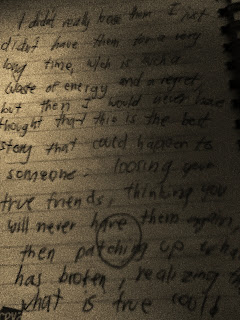 I didn't really loose them I just
didn't have them for a very
long time, wich is such a
waste of energy and a regret,
but then I would never have
thought that this is the best
story that could happen to
someone. loosing your
true friends, thinking you
will never have them again,
then patching up what
has broken, realizing th
what is true could